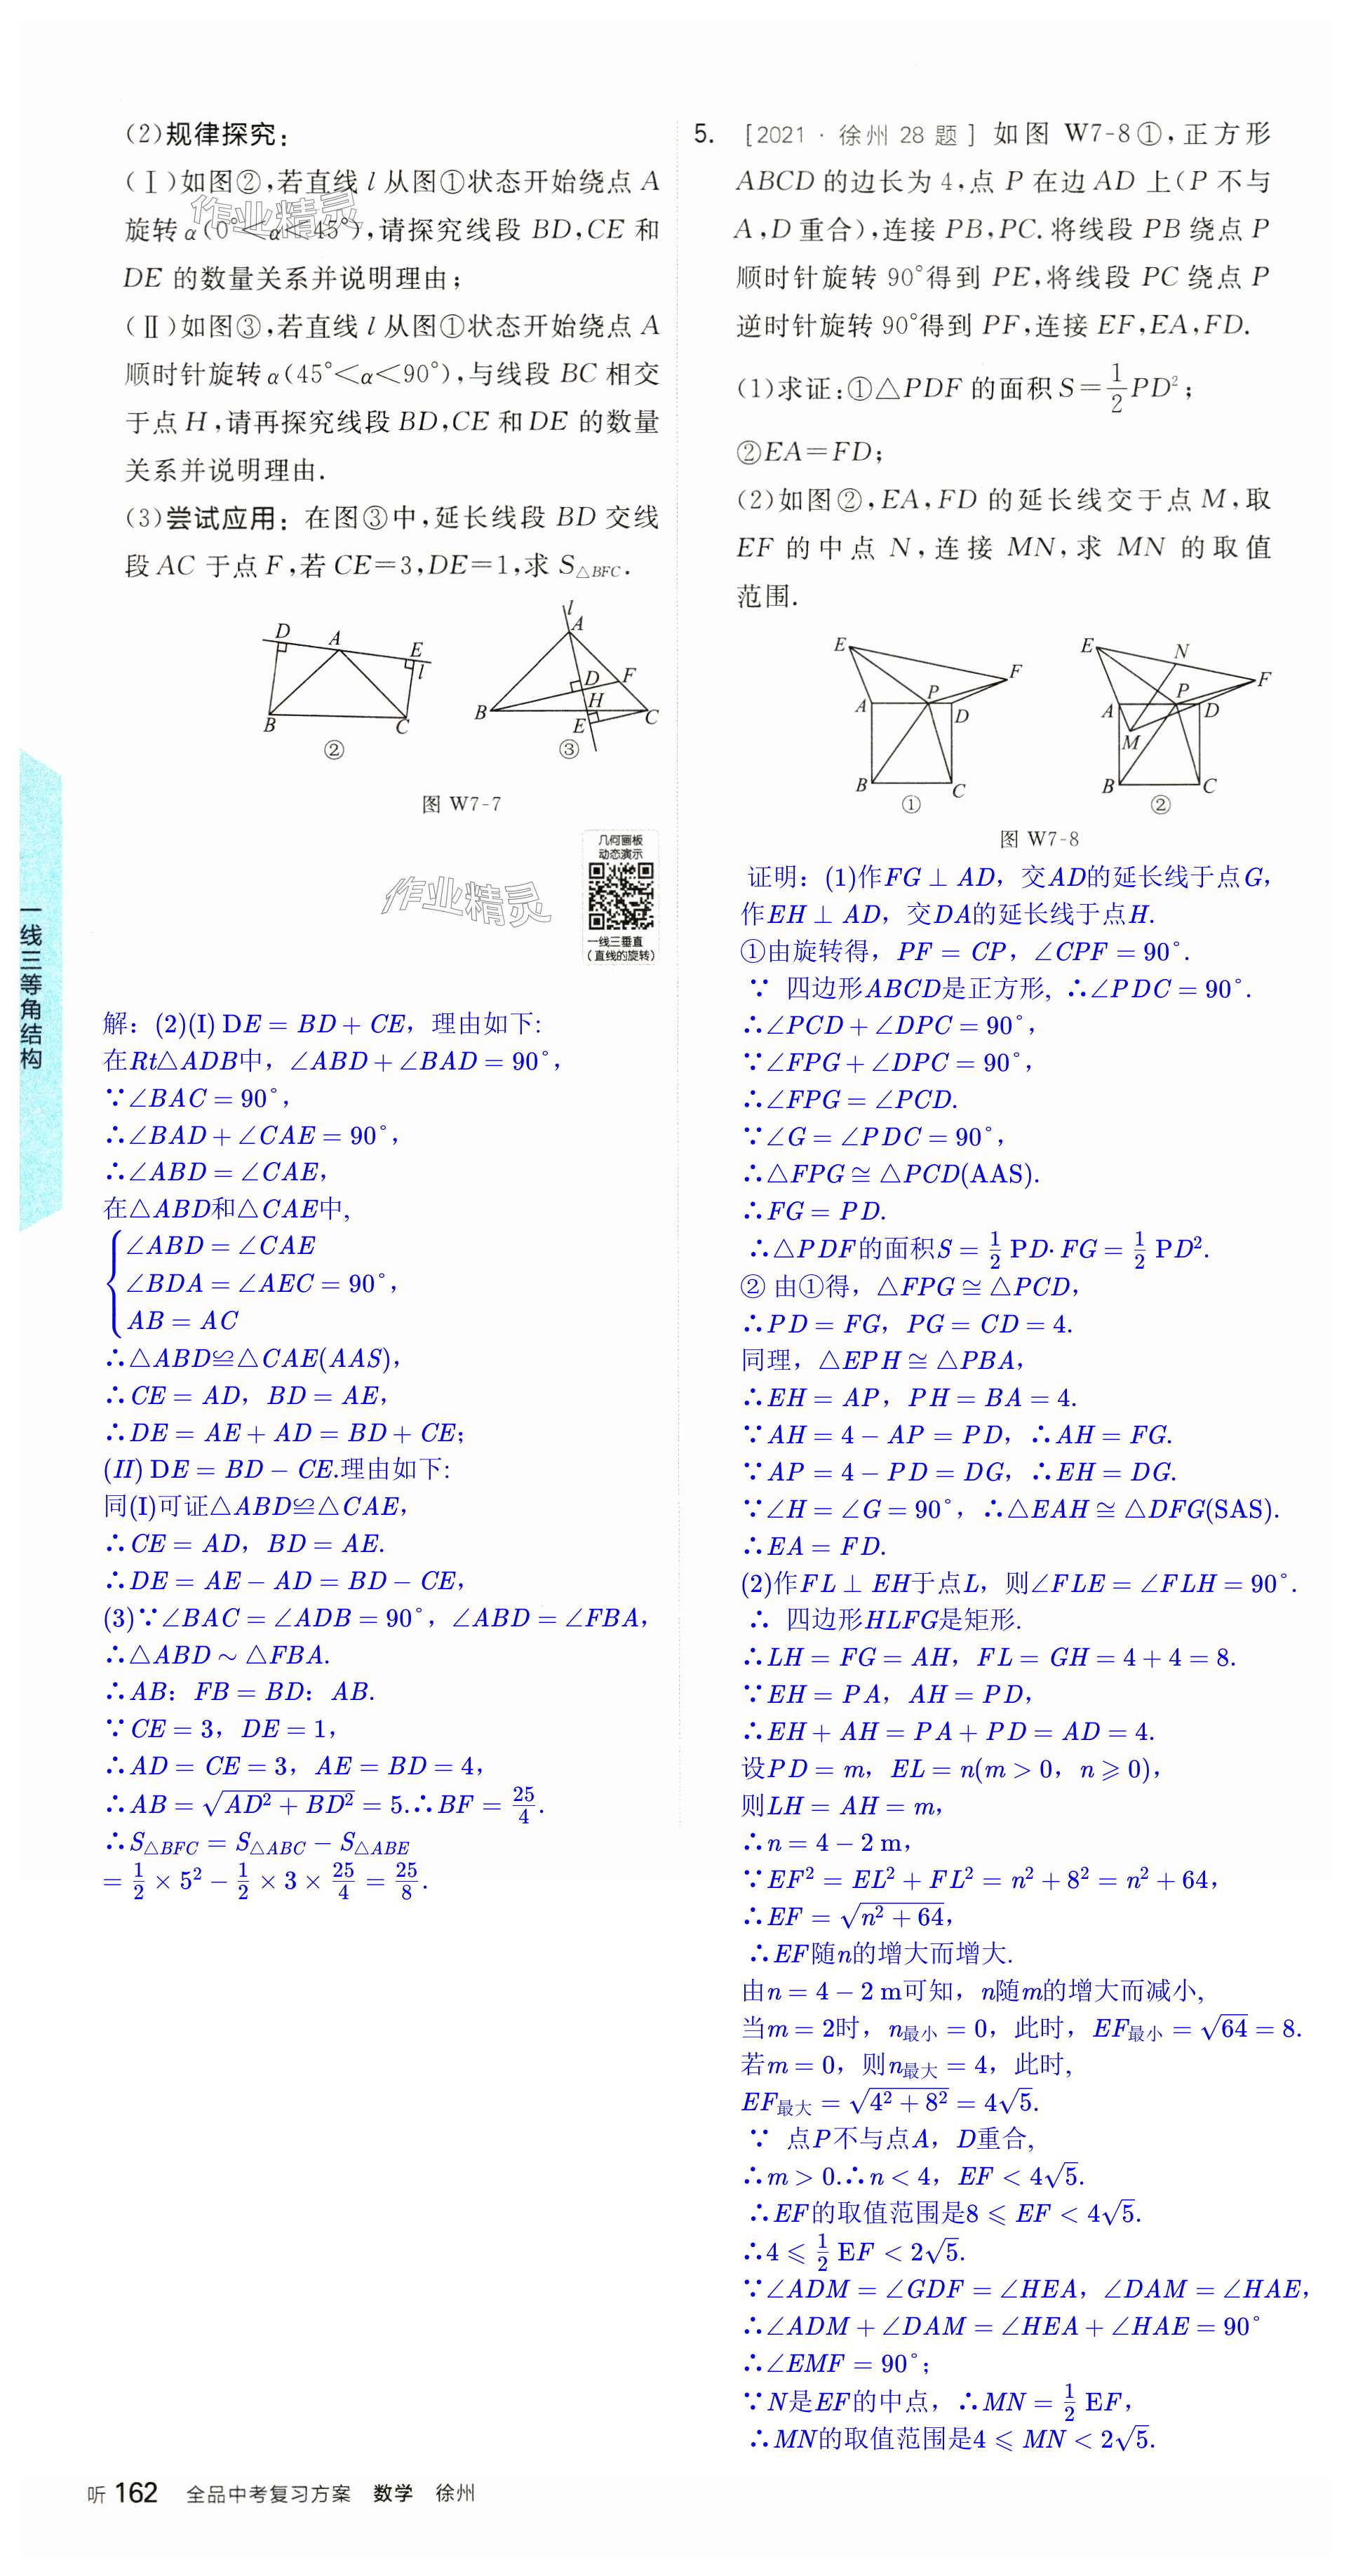 (2)规律探究:
(Ⅰ)如图②,若直线 l 从图①状态开始绕点 A
旋转 α(0°<α<45°),请探究线段 BD,CE 和
DE 的数量关系并说明理由;
(Ⅱ)如图③,若直线 l 从图①状态开始绕点 A
顺时针旋转 α(45°<α<90°),与线段 BC 相交
于点 H,请再探究线段 BD,CE 和 DE 的数量
关系并说明理由.
(3)尝试应用: 在图③中,延长线段 BD 交线
段 AC 于点 F,若 CE=3,DE=1,求 S△BFC.
D A E l B C
②
l A D F H B E C
③
图 W7-7
几何画板
动态演示
一线三垂直
(直线的旋转)
作业精灵
作业精灵
一线三等角结构
解: (2)(I) DE = BD + CE, 理由如下:
在Rt△ADB中, ∠ABD + ∠BAD = 90°,
∵∠BAC = 90°,
∴∠BAD + ∠CAE = 90°,
∴∠ABD = ∠CAE,
在△ABD和△CAE中,
∠ABD = ∠CAE
∠BDA = ∠AEC = 90°,
AB = AC
∴△ABD≌△CAE(AAS),
∴CE = AD, BD = AE,
∴DE = AE + AD = BD + CE;
(II) DE = BD − CE.理由如下:
同(I)可证△ABD≌△CAE,
∴CE = AD, BD = AE.
∴DE = AE − AD = BD − CE,
(3)∵∠BAC = ∠ADB = 90°, ∠ABD = ∠FBA,
∴△ABD ~ △FBA.
∴AB: FB = BD: AB.
∵CE = 3, DE = 1,
∴AD = CE = 3, AE = BD = 4,
∴AB = √(AD² + BD²) = 5.∴BF = 25/4.
∴S△BFC = S△ABC − S△ABE
= 1/2 × 5² − 1/2 × 3 × 25/4 = 25/8.
5. [2021·徐州 28 题] 如图 W7-8①,正方形
ABCD 的边长为 4,点 P 在边 AD 上(P 不与
A,D 重合),连接 PB,PC.将线段 PB 绕点 P
顺时针旋转 90°得到 PE,将线段 PC 绕点 P
逆时针旋转 90°得到 PF,连接 EF,EA,FD.
(1)求证:①△PDF 的面积 S=1/2PD²;
②EA=FD;
(2)如图②,EA,FD 的延长线交于点 M,取
EF 的中点 N,连接 MN,求 MN 的取值
范围.
E F P A D B C
①
E N F P A D M B C
②
图 W7-8
证明: (1)作FG ⊥ AD, 交AD的延长线于点G,
作EH ⊥ AD, 交DA的延长线于点H.
①由旋转得, PF = CP, ∠CPF = 90°.
∵ 四边形ABCD是正方形, ∴∠PDC = 90°.
∴∠PCD + ∠DPC = 90°,
∵∠FPG + ∠DPC = 90°,
∴∠FPG = ∠PCD.
∵∠G = ∠PDC = 90°,
∴△FPG ≅ △PCD(AAS).
∴FG = PD.
∴△PDF的面积S = 1/2 PD· FG = 1/2 PD².
② 由①得, △FPG ≅ △PCD,
∴PD = FG, PG = CD = 4.
同理, △EPH ≅ △PBA,
∴EH = AP, PH = BA = 4.
∵AH = 4 − AP = PD, ∴AH = FG.
∵AP = 4 − PD = DG, ∴EH = DG.
∵∠H = ∠G = 90°, ∴△EAH ≅ △DFG(SAS).
∴EA = FD.
(2)作FL ⊥ EH于点L, 则∠FLE = ∠FLH = 90°.
∴ 四边形HLFG是矩形.
∴LH = FG = AH, FL = GH = 4 + 4 = 8.
∵EH = PA, AH = PD,
∴EH + AH = PA + PD = AD = 4.
设PD = m, EL = n(m > 0, n ⩾ 0),
则LH = AH = m,
∴n = 4 − 2 m,
∵EF² = EL² + FL² = n² + 8² = n² + 64,
∴EF = √(n² + 64),
∴EF随n的增大而增大.
由n = 4 − 2 m可知, n随m的增大而减小,
当m = 2时, n最小 = 0, 此时, EF最小 = √64 = 8.
若m = 0, 则n最大 = 4, 此时,
EF最大 = √(4² + 8²) = 4√5.
∵ 点P不与点A, D重合,
∴m > 0.∴n < 4, EF < 4√5.
∴EF的取值范围是8 ⩽ EF < 4√5.
∴4 ⩽ 1/2 EF < 2√5.
∵∠ADM = ∠GDF = ∠HEA, ∠DAM = ∠HAE,
∴∠ADM + ∠DAM = ∠HEA + ∠HAE = 90°
∴∠EMF = 90°;
∵N是EF的中点, ∴MN = 1/2 EF,
∴MN的取值范围是4 ⩽ MN < 2√5.
听 162 全品中考复习方案 数学 徐州